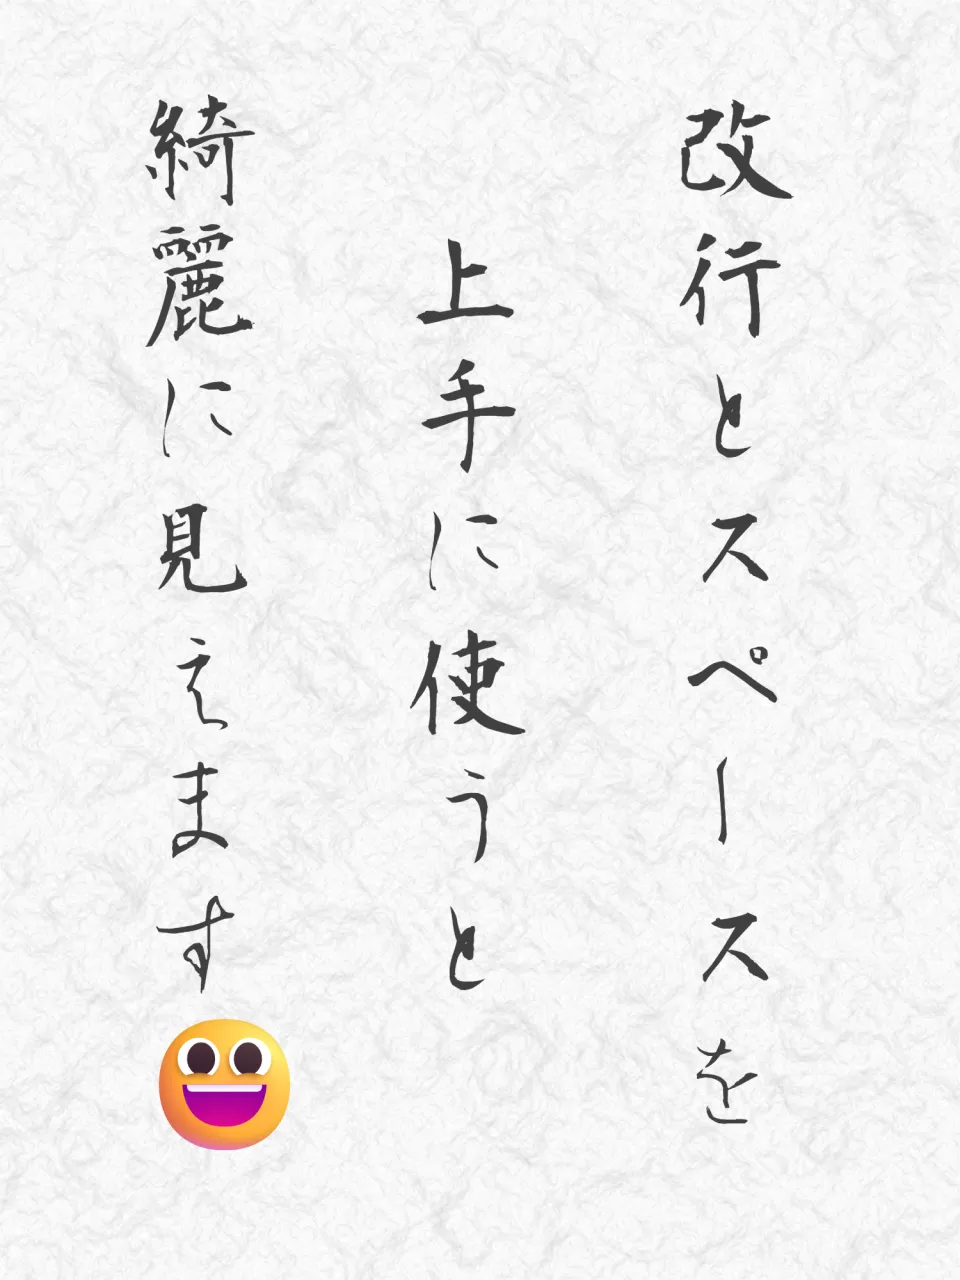 改行とスペースを
上手に使うと
綺麗に見えます😀